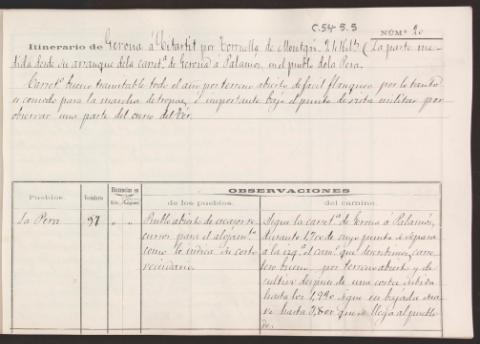 C.54-5.5
NÚM.º 20
Itinerario de Gerona á Estartit por Torruella de Montgri. 21 Kil.s (La parte me-
dida desde su arranque de la carret.ª de Gerona a Palamós, en el pueblo de la Pera.
Carret.ª buena transitable todo el año por terreno abierto de facil flanqueo por lo tanto
es comodo para la marcha de tropas, é importante bajo el punto de vista militar por
observar una parte del curso del Ter.
OBSERVACIONES
Pueblos.
Vecindario
Distancias en
de los pueblos.
del camino.
La Pera
97
" "
Pueblo abierto de escasos re-
cursos para el alojam.to
como lo indica su corto
vecindario.
Sigue la carret.ª de Gerona a Palamós,
durante 1.700 de cuyo punto se separa
a la izq.ª el cam.º que describimos, carre-
tero bueno, por terreno abierto y de
cultivo despues de una corta subida
hasta los 1,990 sigue en bajada sua-
ve hasta 3,800 que se llega al pueblo
de.